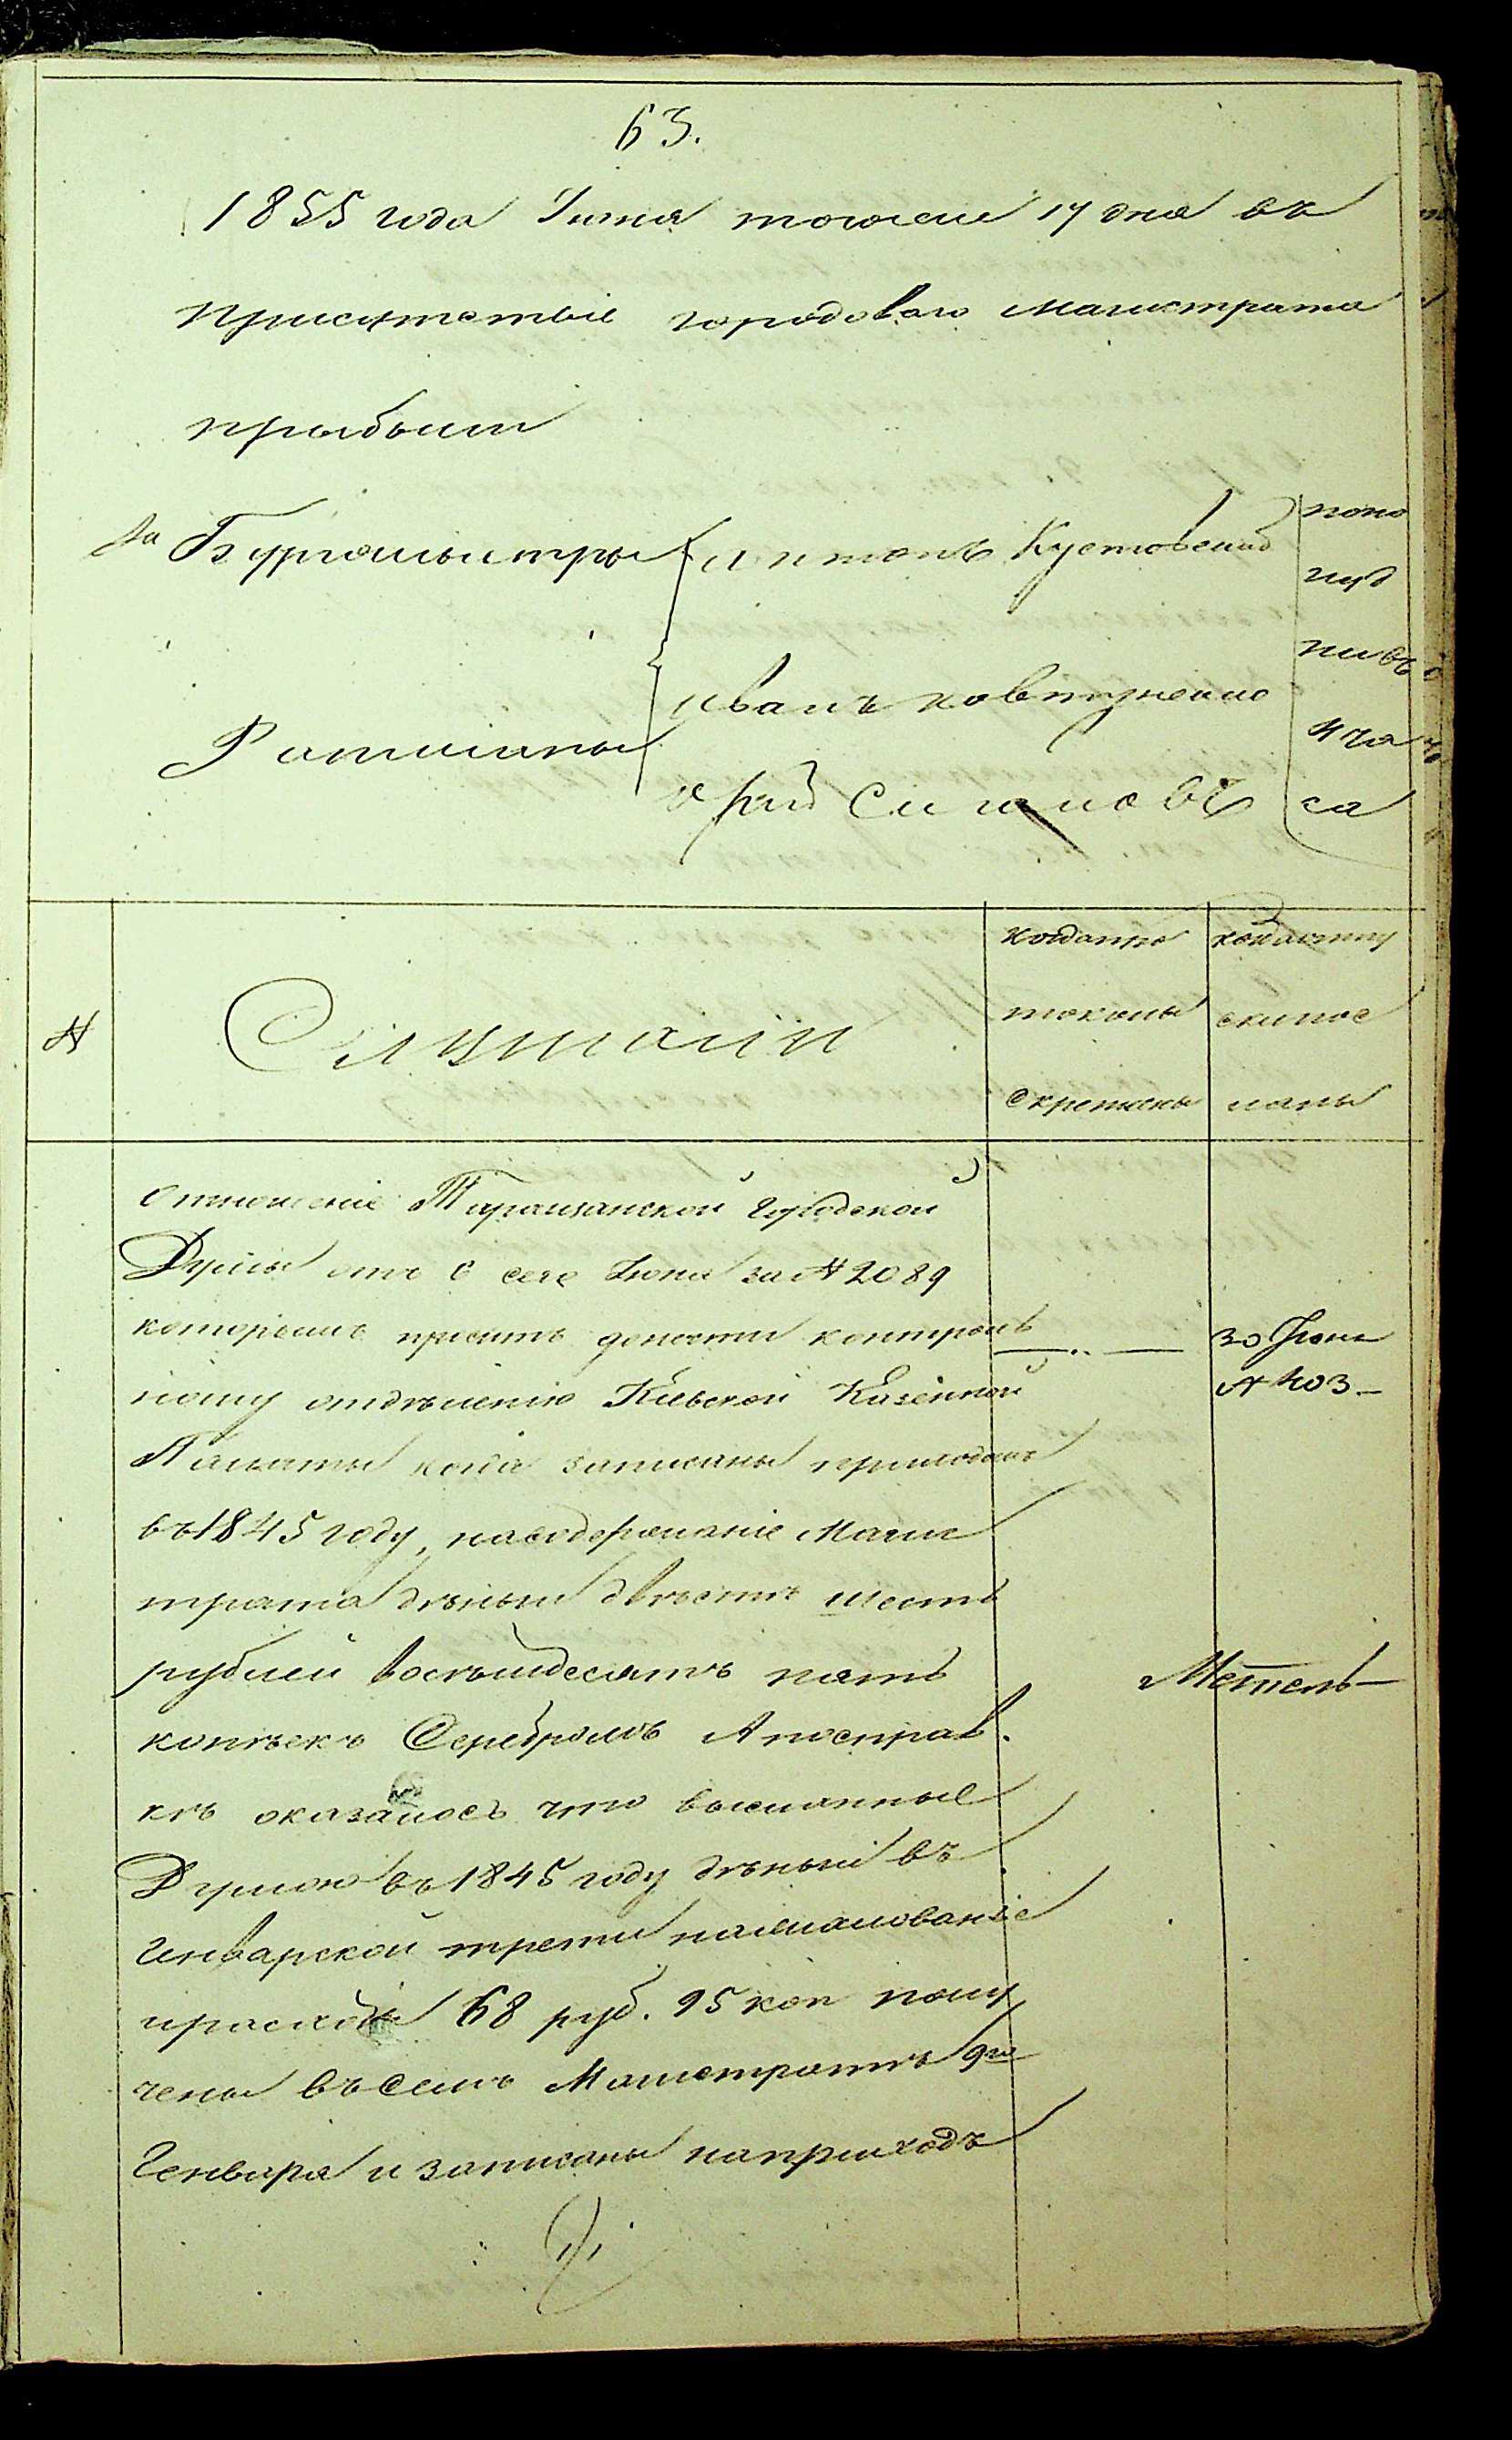 63.
1855 года Іюня тогоже 17 дня въ
присутствіе городоваго магистрата
прибыли
За Бургомистры Антонъ Кустовскій
Ратманы
Иванъ Ковтуненко
попо
луд
ни въ
4 ча
са
№
Слушали
когда про
токолы
скреплены
когда
и по
саны
Отношеніе Таращанской Городской
Думы отъ 6 сего Іюня за № 2089
которымъ проситъ донести контроль
ному отдѣленію Кіевской Казенной
Палаты когда записаны приходомъ
въ 1845 году, на содержаніе Магис
трата деньги двѣсти шесть
рублей восемьдесятъ пять
копѣекъ Серебромъ А по справ.
кѣ оказалось что высланные
Думою въ 1845 году деньги въ
Генварской трети на жалованіе
и расходы 68 руб. 95 коп полу
чены въ семъ Магистратѣ 9го
Генваря и записаны на приходъ
30 Іюня
№ 403